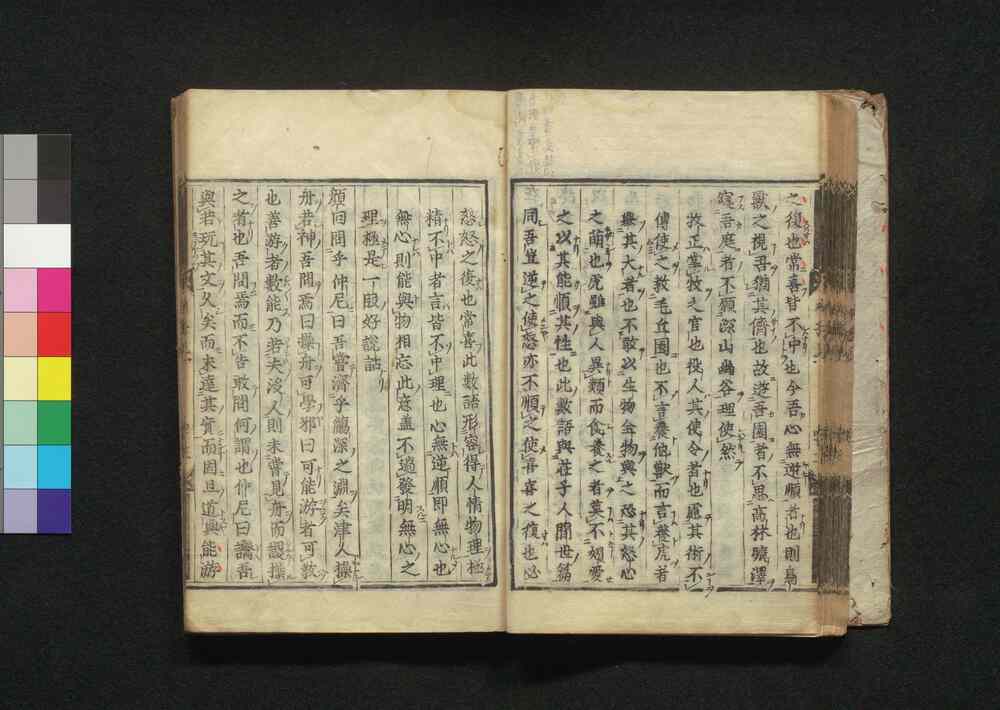 之復也常喜皆不中也今吾心無逆順者也則鳥
獸之視吾猶其儕也故遊吾園者不思高林曠澤
寢吾庭者不願深山幽谷理使然
牧正掌牧之官也役人其使令者也慮其術不
傳使之教毛丘園也不言養他獸而言養虎者
舉其大者也不敢以生物全物與之恐其怒心
之萌也虎雖與人異類而食養之者莫不媚愛
之以其能順其性也此數語與莊子人間世篇
同吾豈逆之使怒亦不順之使喜喜之復也必
怒怒之復也常喜此數語形容得人情物理極
精不中者言皆不中理也心無逆順即無心也
無心則能與物相忘此意蓋不過發明無心之
理極是一段好說話
顏回問乎仲尼曰吾嘗濟乎觴深之淵矣津人操
舟若神吾問焉曰操舟可學邪曰可能游者可教
也善游者數能乃若夫沒人則未嘗見舟而謖操
之者也吾問焉而不告敢問何謂也仲尼曰譩吾
與若玩其文久矣而未達其實而固且道與能游